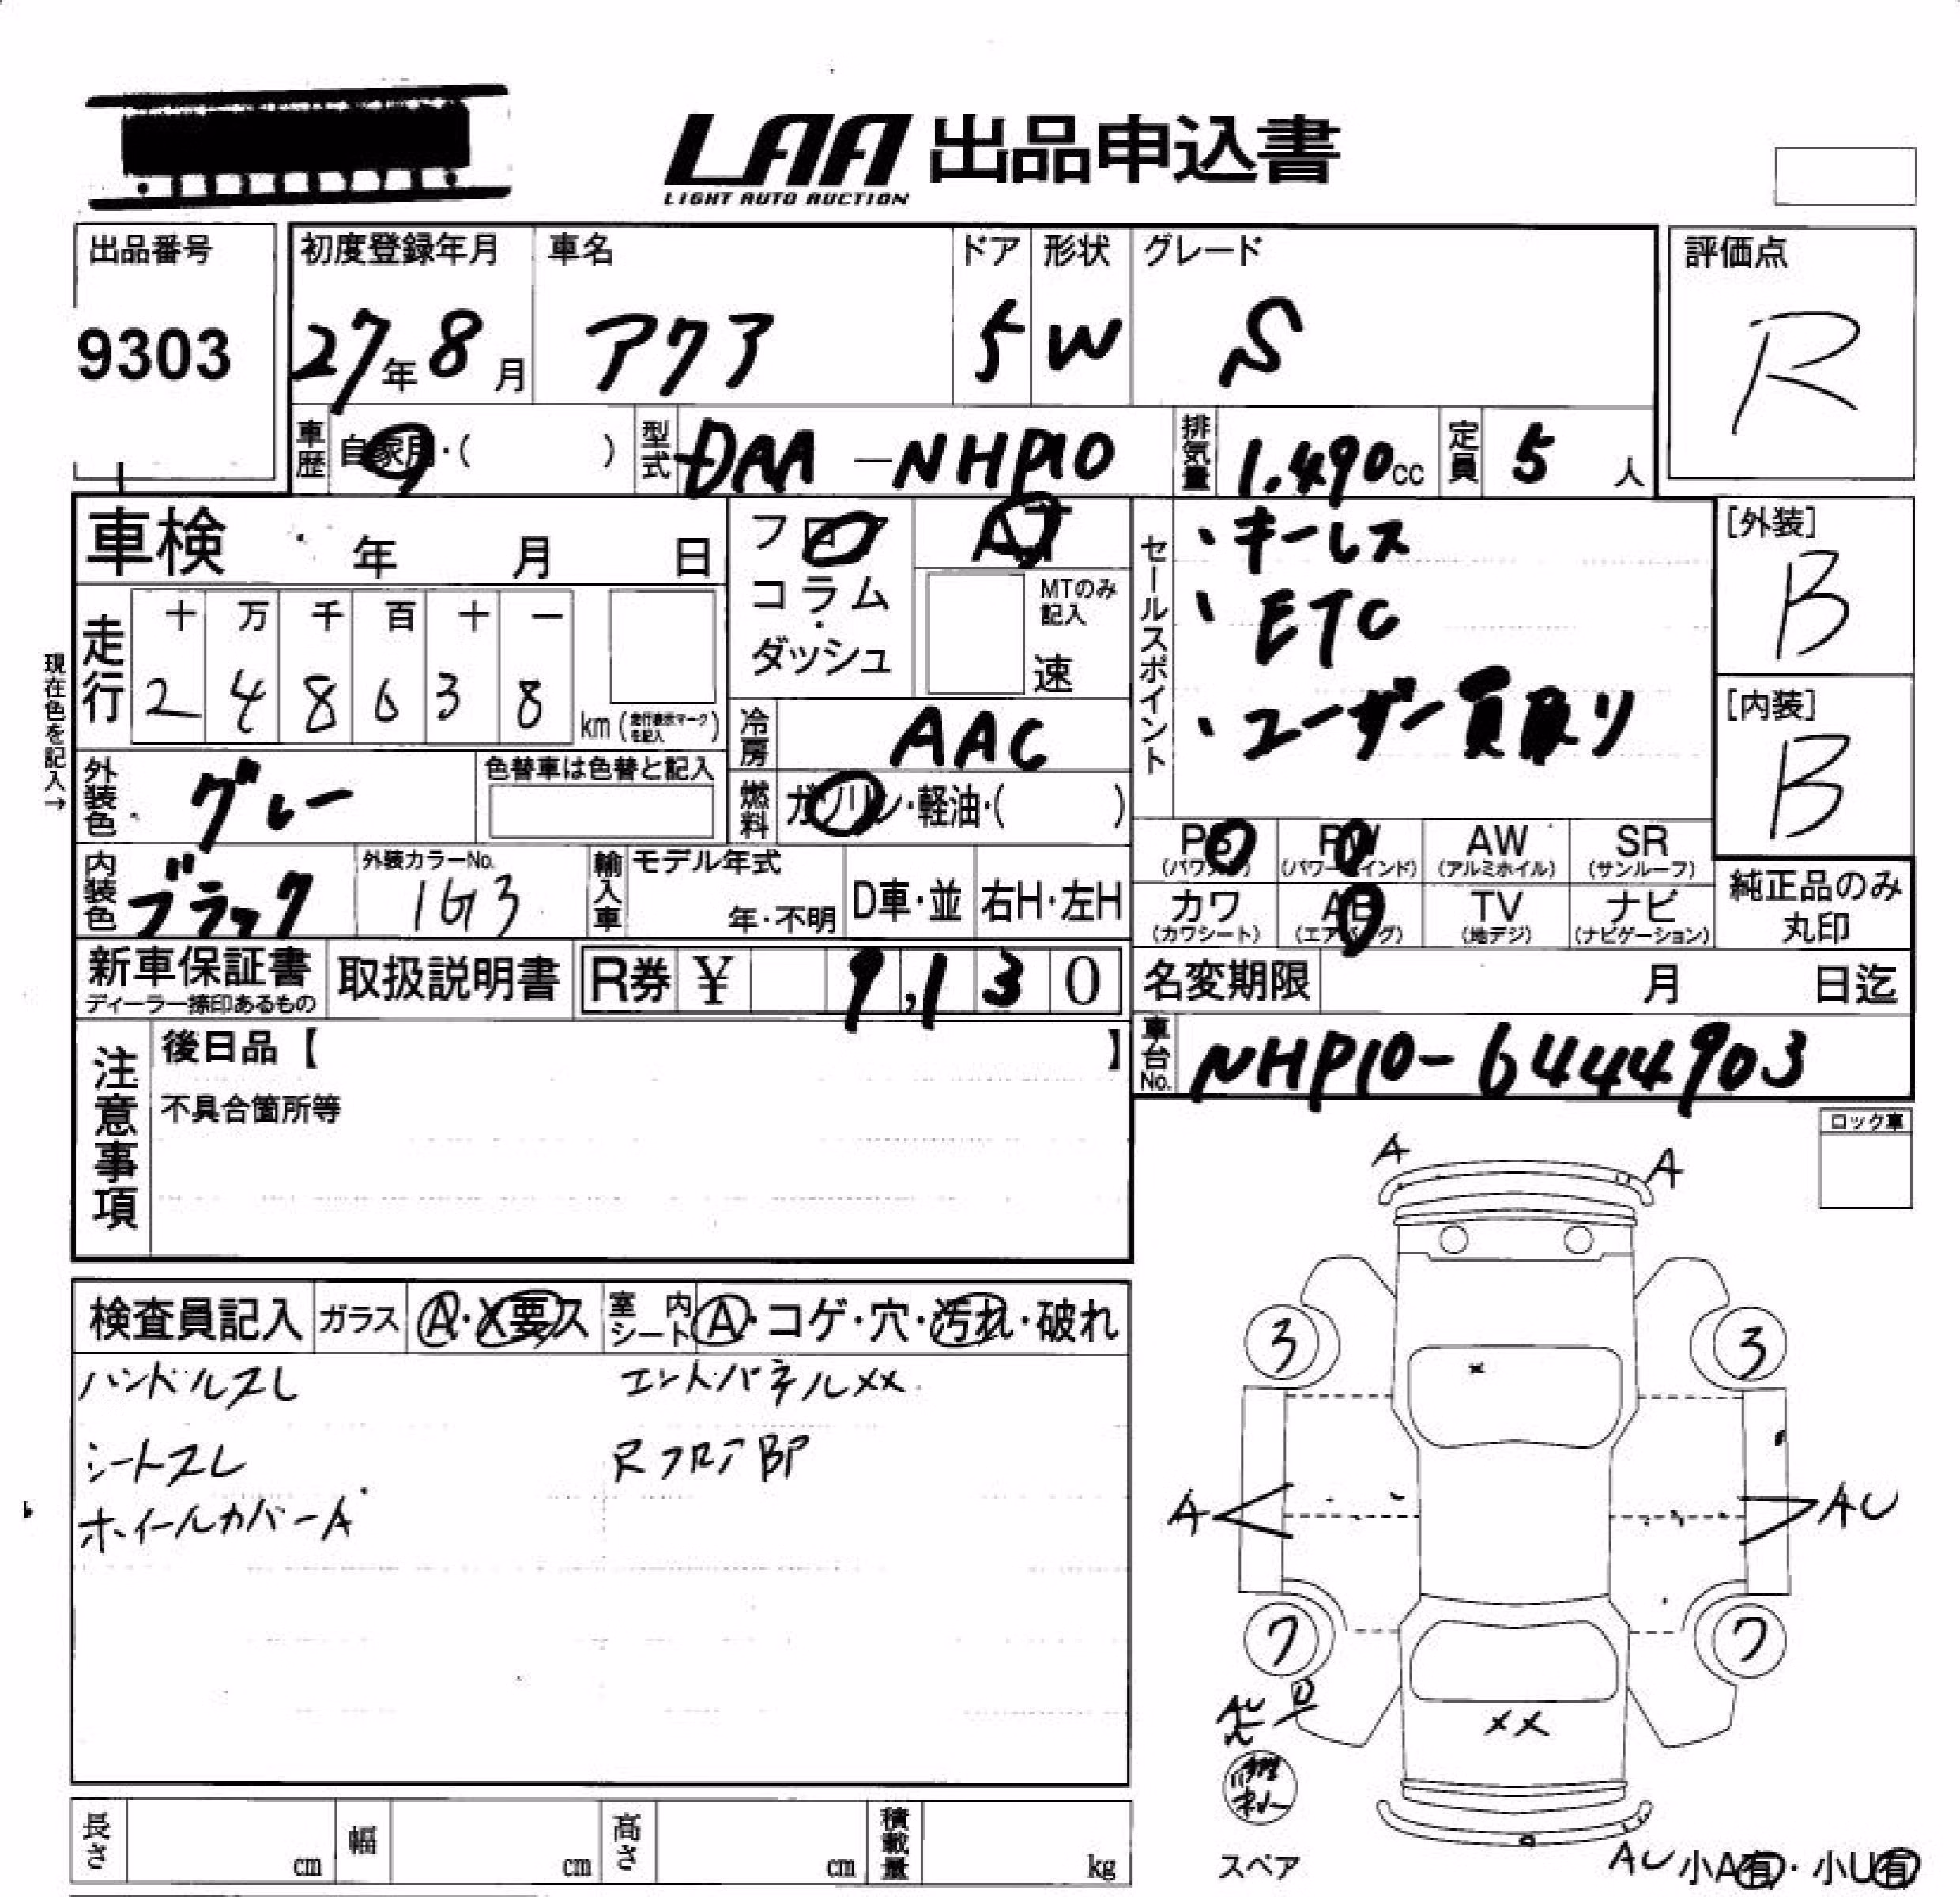 LAA 出品申込書
LIGHT AUTO AUCTION
出品番号
9303
初度登録年月
27年8月
車名
アクア
ドア
5
形状
W
グレード
S
評価点
R
車歴 自家用・( )
型式 DAA-NHP10
排気量 1.490cc
定員 5人
車検 年 月 日
フロア
コラム・
ダッシュ
AT
MTのみ
記入
速
セールスポイント
・キーレス
・ETC
・ユーザー買取り
[外装]
B
[内装]
B
現在色を記入→
走行
十 万 千 百 十 一
2 4 8 6 3 8
km(走行表示マークを記入)
冷房 AAC
燃料 ガソリン・軽油・( )
外装色 グレー
色替車は色替と記入
内装色 ブラック
外装カラーNo.
1G3
輸入車
モデル年式
年・不明
D車・並
右H・左H
PS PW AW SR
(パワステ) (パワーウインド) (アルミホイル) (サンルーフ)
カワ AB TV ナビ
(カワシート) (エアバッグ) (地デジ) (ナビゲーション)
純正品のみ
丸印
新車保証書
ディーラー捺印あるもの
取扱説明書
R券 ¥ 9,130
名変期限 月 日迄
車台No. NHP10-6444903
注意事項
後日品【 】
不具合箇所等
ロック車
検査員記入 ガラス A・X要ス 室内シート A・コゲ・穴・汚れ・破れ
ハンドルスレ エンドパネルXX
シートスレ RフロアBP
ホイールカバーA
A A
3 3
x
A AU
7 7
AU
XX
スペア
AU 小A有・小U有
長さ cm 幅 cm 高さ cm 積載量 kg